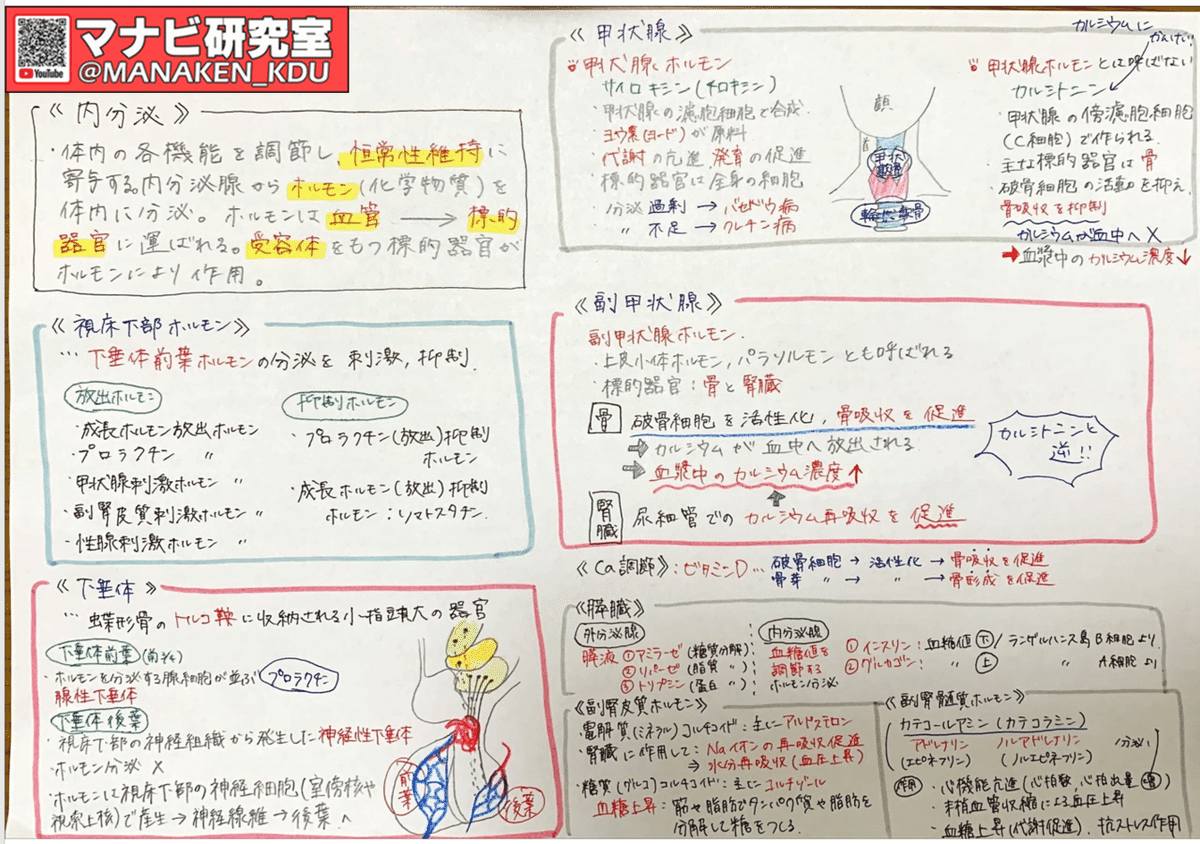 YouTube
マナビ研究室
@MANAKEN_KDU
《内分泌》
・体内の各機能を調節し、恒常性維持に
寄与する。内分泌腺からホルモン(化学物質)を
体内に分泌。ホルモンは血管→標的
器官に運ばれる。受容体をもつ標的器官が
ホルモンにより作用。
《視床下部ホルモン》
…下垂体前葉ホルモンの分泌を刺激,抑制.
放出ホルモン
・成長ホルモン放出ホルモン
・プロラクチン 〃
・甲状腺刺激ホルモン 〃
・副腎皮質刺激ホルモン 〃
・性腺刺激ホルモン 〃
抑制ホルモン
・プロラクチン(放出)抑制
ホルモン
・成長ホルモン(放出)抑制
ホルモン:ソマトスタチン.
《下垂体》
…蝶形骨のトルコ鞍に収納される小指頭大の器官
下垂体前葉(前3/4)
・ホルモンを分泌する腺細胞が並ぶ
プロラクチン
腺性下垂体
下垂体後葉
・視床下部の神経組織から発生した神経性下垂体
・ホルモン分泌 X
・ホルモンは視床下部の神経細胞(室傍核や
視索上核)で産生→神経線維→後葉へ
前葉
後葉
《甲状腺》
甲状腺ホルモン
サイロキシン(チロキシン)
・甲状腺の濾胞細胞で合成.
・ヨウ素(ヨード)が原料
・代謝の亢進,発育の促進
・標的器官は全身の細胞
・分泌 過剰→バセドウ病
〃 不足→クレチン病
顔
甲状軟骨
輪状軟骨
カルシウムに
かんけい
甲状腺ホルモンとは呼ばない
カルシトニン
・甲状腺の傍濾胞細胞
(C細胞)で作られる
・主な標的器官は骨
・破骨細胞の活動を抑え,
骨吸収を抑制
カルシウムが血中へ X
→血漿中のカルシウム濃度↓
《副甲状腺》
副甲状腺ホルモン.
・上皮小体ホルモン,パラソルモンとも呼ばれる
・標的器官:骨と腎臓
骨 破骨細胞を活性化,骨吸収を促進
⇒カルシウムが血中へ放出される
⇒血漿中のカルシウム濃度↑
カルシトニンと
逆!!
腎臓 尿細管でのカルシウム再吸収を促進
《Ca調節》:ビタミンD…破骨細胞→活性化→骨吸収を促進
骨芽 〃 → 〃 →骨形成を促進
《膵臓》
外分泌腺 : 内分泌腺
膵液 ①アミラーゼ(糖質分解)
②リパーゼ(脂質 〃)
③トリプシン(蛋白 〃)
血糖値を
調節する
ホルモン分泌
①インスリン:血糖値下/ランゲルハンス島B細胞より
②グルカゴン: 〃 上 〃 A細胞より
《副腎皮質ホルモン》
電解質(ミネラル)コルチコイド:主にアルドステロン
・腎臓に作用して:Naイオンの再吸収促進
⇒水分再吸収(血圧上昇)
・糖質(グルコ)コルチコイド:主にコルチゾール
血糖上昇:筋や脂肪がタンパク質や脂肪を
分解して糖をつくる.
《副腎髄質ホルモン》
カテコールアミン(カテコラミン)
アドレナリン ノルアドレナリン 分泌
(エピネフリン) (ノルエピネフリン)
作用 ・心機能亢進(心拍数,心拍出量 増)
・末梢血管収縮による血圧上昇
・血糖上昇(代謝促進).抗ストレス作用